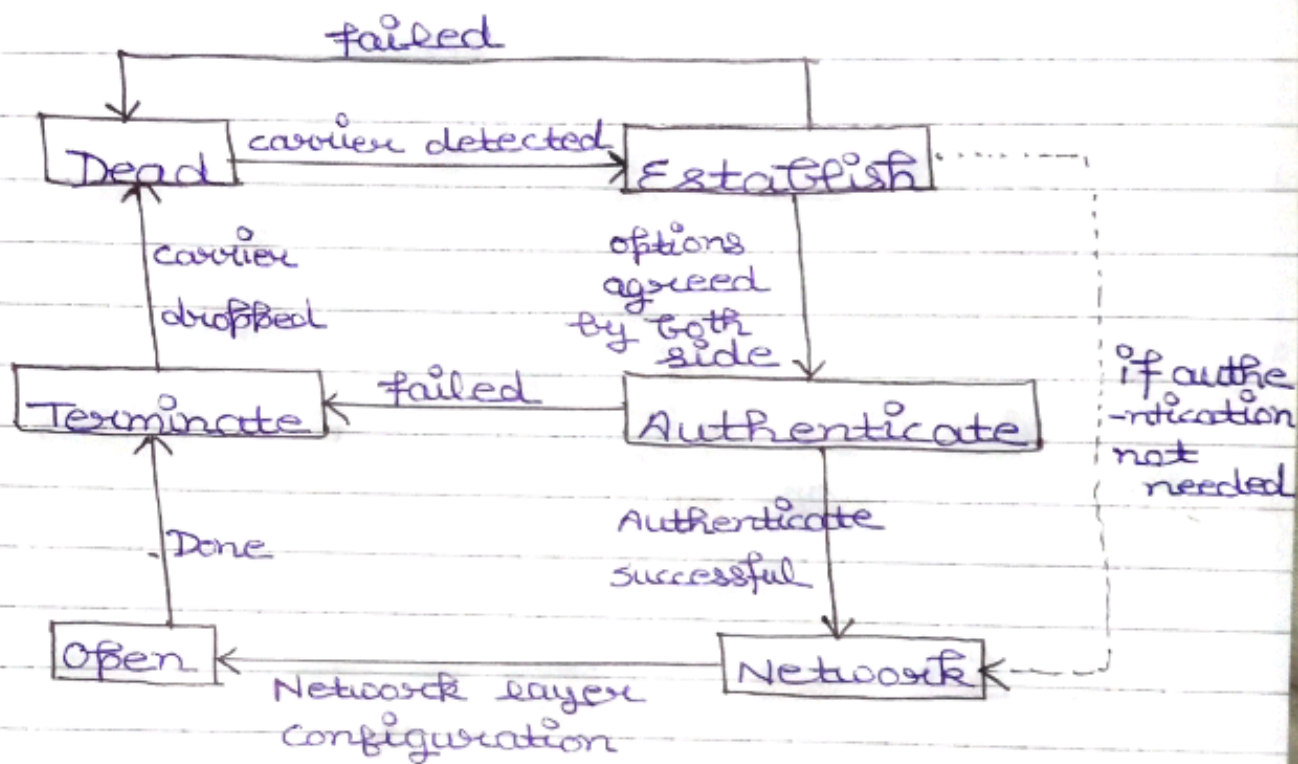 failed
Dead
carrier detected
Establish
carrier
dropped
options
agreed
by both
side
if authe
-ntication
not
needed
Terminate
failed
Authenticate
Done
Authenticate
successful
Open
Network layer
configuration
Network